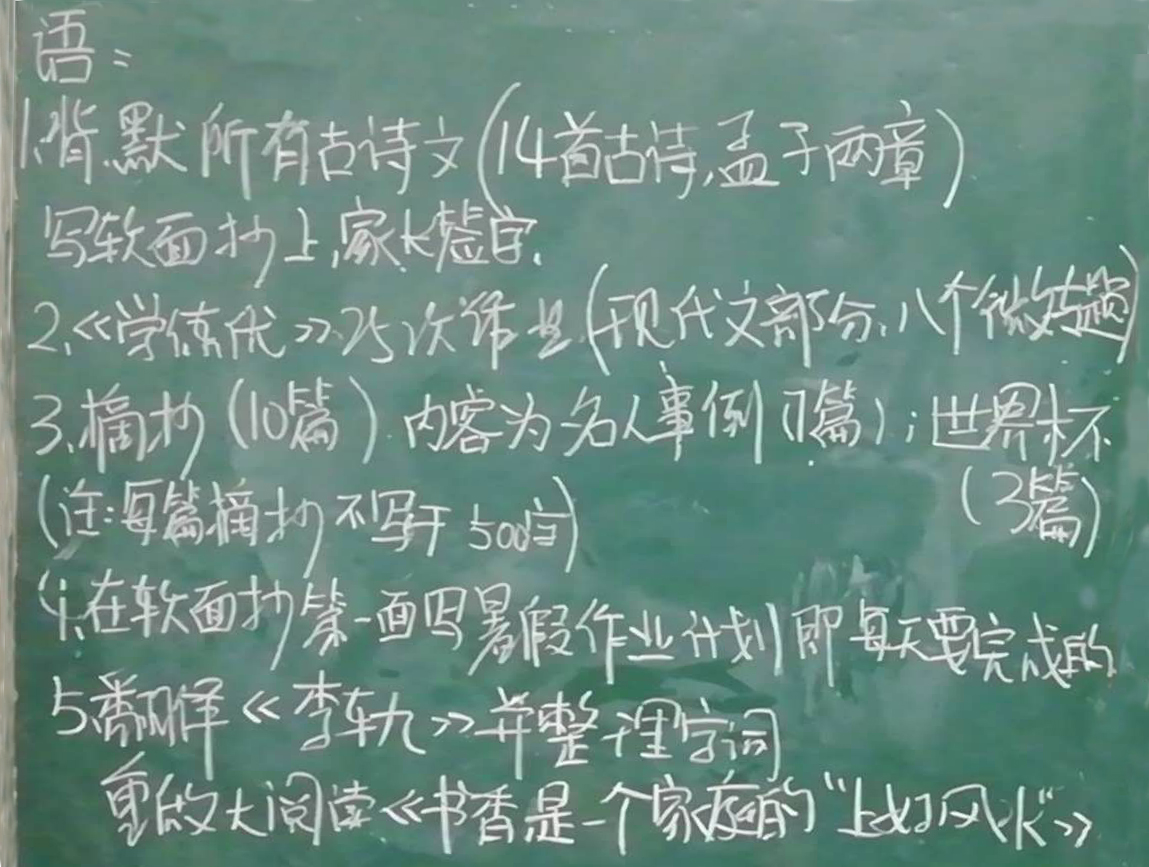 语:
1.背.默所有古诗文(14首古诗,孟子两章)
写软面抄上,家长签字.
2.《学练优》.25次作业(现代文部分.八个微专题)
3.摘抄(10篇).内容为名人事例(7篇);世界杯
(3篇)
(注:每篇摘抄不写于500字)
4.在软面抄第一面写暑假作业计划即每天要完成的
5.翻译《李车九》并整理字词
重做大阅读《书香是一个家庭的"上好风水"》